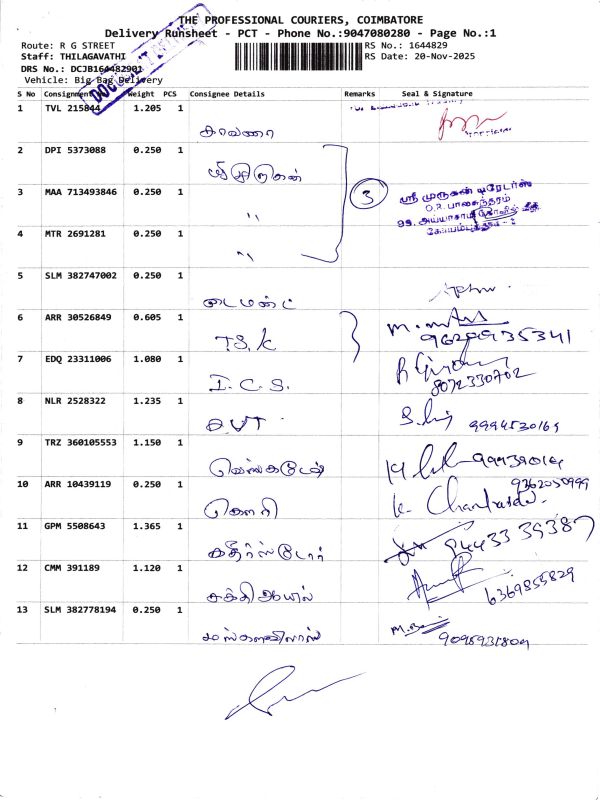 THE PROFESSIONAL COURIERS, COIMBATORE
Delivery Runsheet - PCT - Phone No.:9047080280 - Page No.:1
Route: R G STREET
RS No.: 1644829
Staff: THILAGAVATHI
RS Date: 20-Nov-2025
DRS No.: DCJB164482901
Vehicle: Big Bag Delivery
S No Consignment Weight PCS Consignee Details Remarks Seal & Signature
1 TVL 215844 1.205 1
சரவணா
2 DPI 5373088 0.250 1
ஸ்ரீ முருகன்
3 MAA 713493846 0.250 1 " 3
ஸ்ரீ முருகன் டிரேடர்ஸ்
4 MTR 2691281 0.250 1 "
5 SLM 382747002 0.250 1
டைமண்ட்
6 ARR 30526849 0.605 1
T.S.K
7 EDQ 23311006 1.080 1
I.C.S.
8072330702
8 NLR 2528322 1.235 1
9994530169
9 TRZ 360105553 1.150 1
வெங்கடேஷ்
10 ARR 10439119 0.250 1 9362050999
கௌரி
11 GPM 5508643 1.365 1
கதிர்ஸ்டோர்
12 CMM 391189 1.120 1
சக்தி ஆயில்
6369855829
13 SLM 382778194 0.250 1